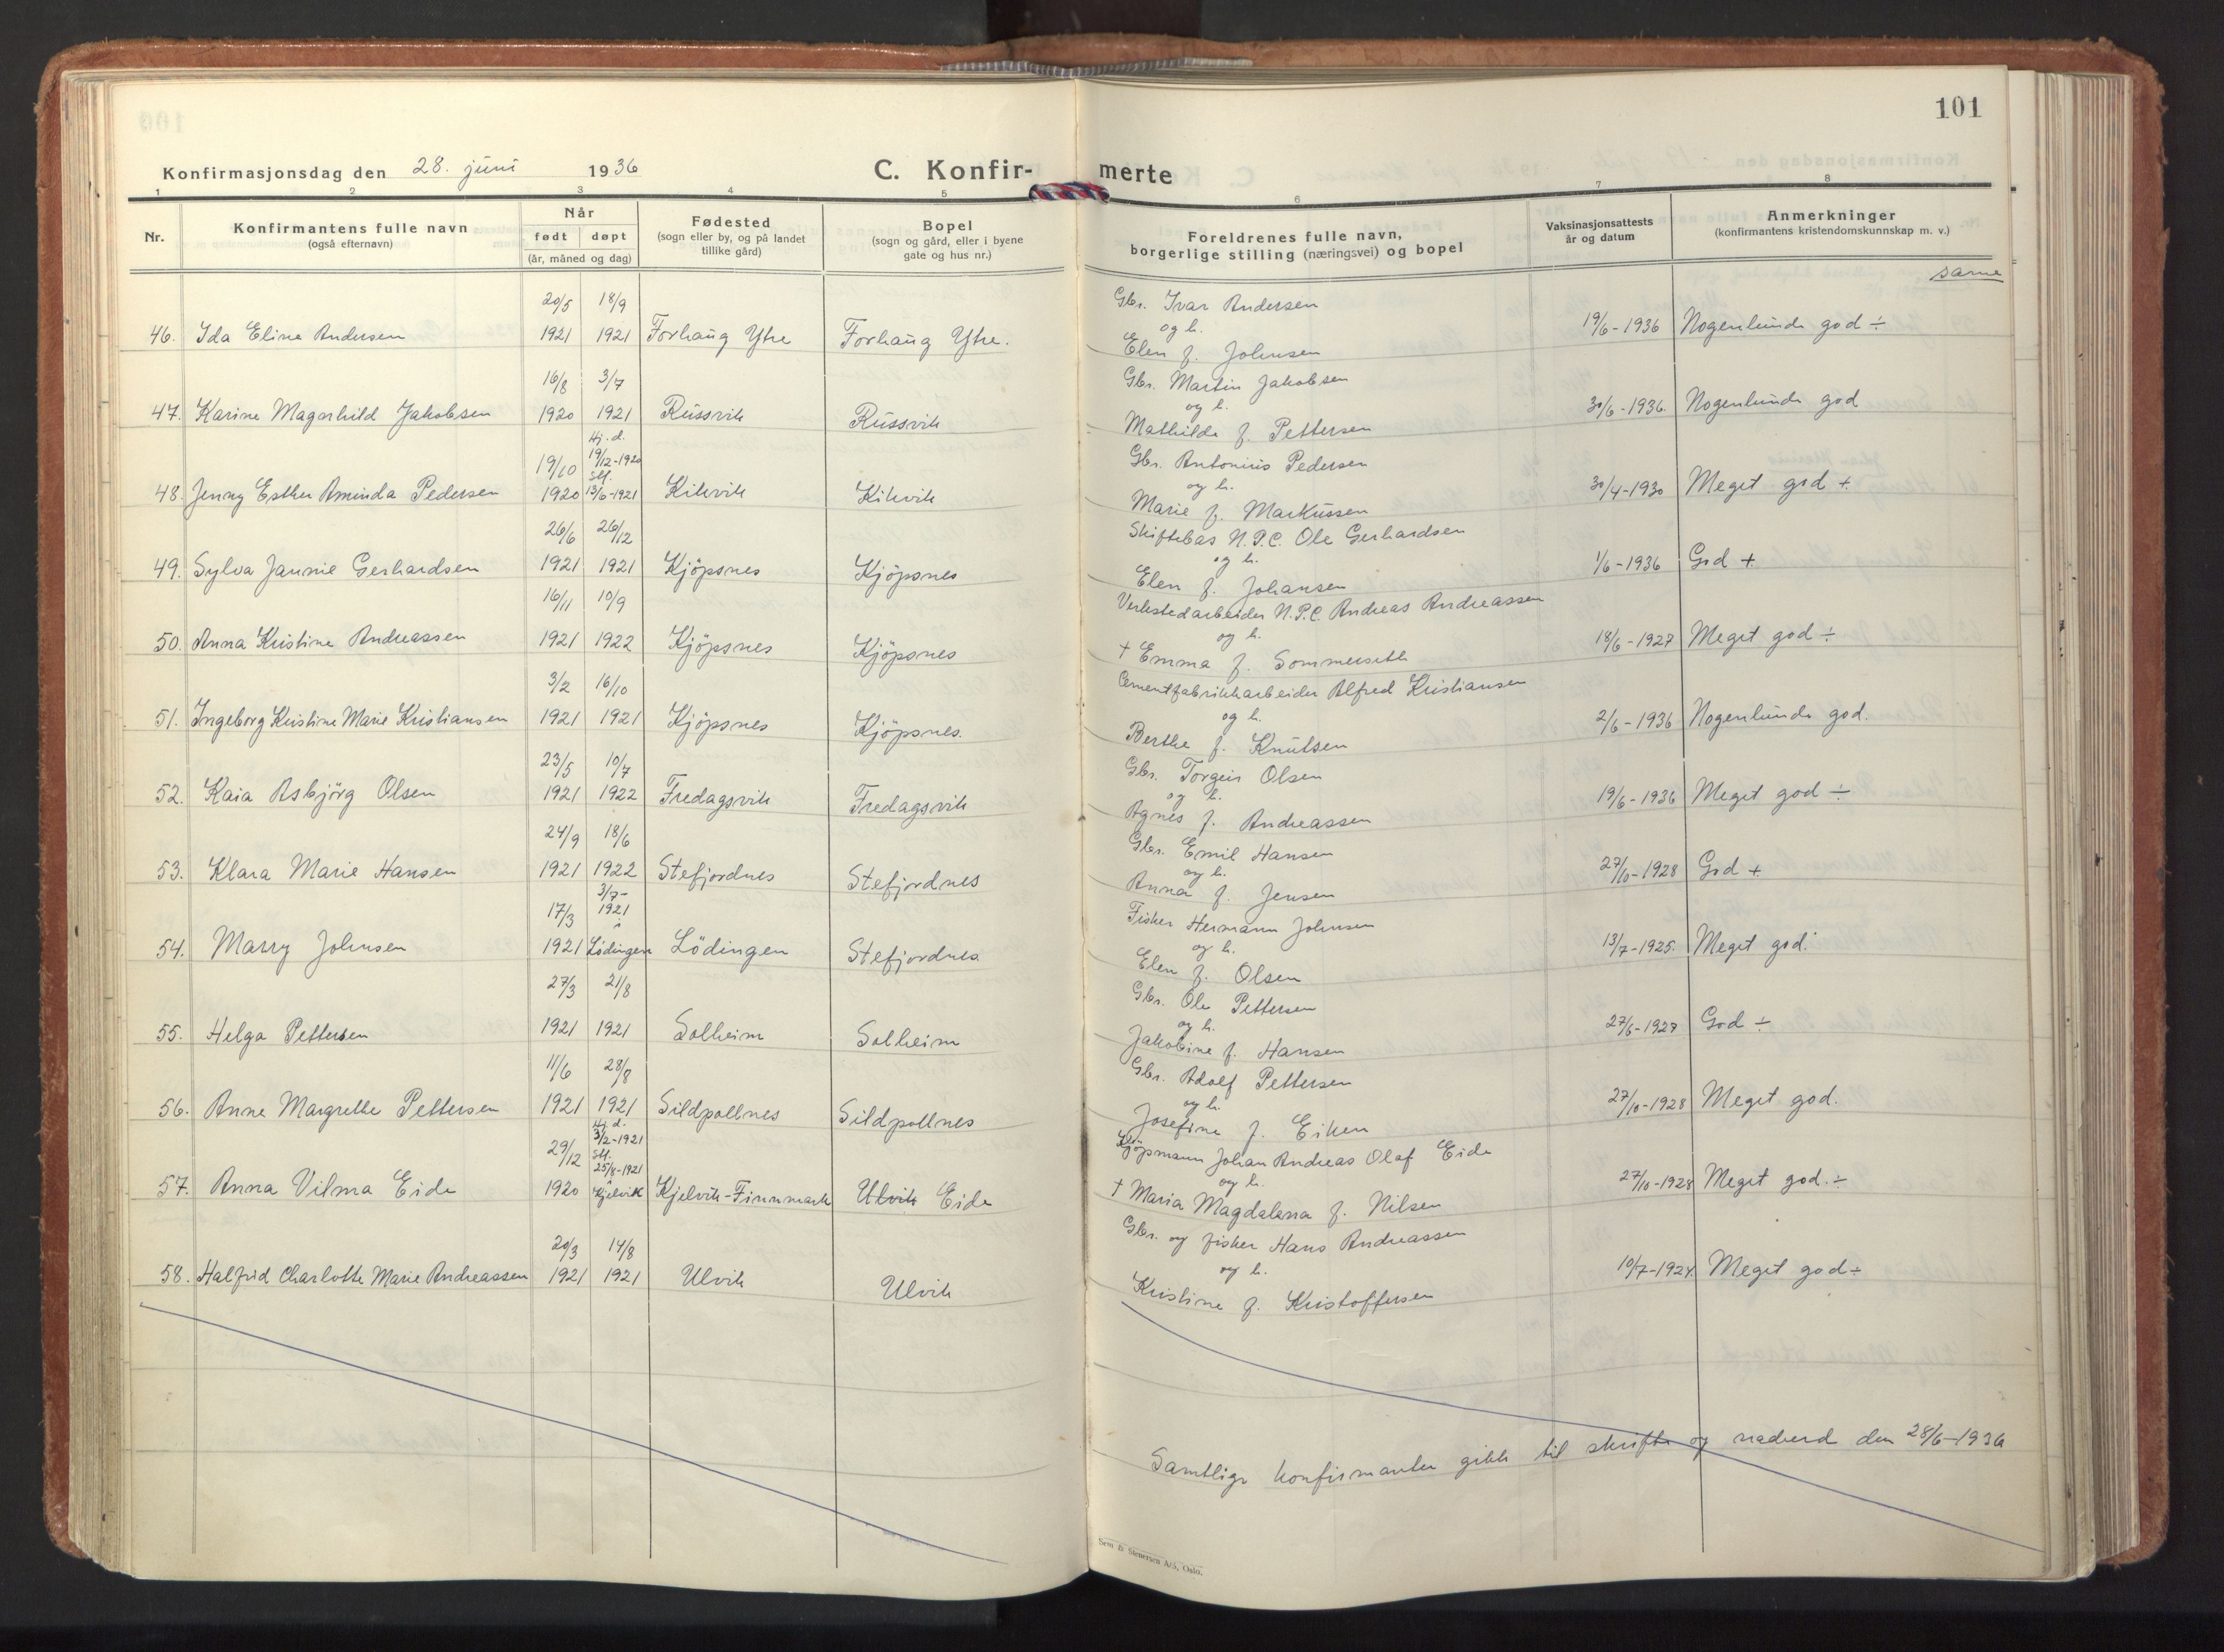 101
Konfirmasjonsdag den 28. juni 1936
C. Konfirmerte
1 2 3 4 5 6 7 8
Nr.
Konfirmantens fulle navn
(også efternavn)
Når
født døpt
(år, måned og dag)
Fødested
(sogn eller by, og på landet
tillike gård)
Bopel
(sogn og gård, eller i byene
gate og hus nr.)
Foreldrenes fulle navn,
borgerlige stilling (næringsvei) og bopel
Vaksinasjonsattests
år og datum
Anmerkninger
(konfirmantens kristendomskunnskap m. v.)
same
20/5 18/9 Gbr. Ivar Andersen
og h.
46. Ida Eline Andersen 1921 1921 Forhaug Ytre Forhaug Ytre. 19/6-1936 Nogenlunde god ÷
Elen f. Johnsen
16/8 3/7 Gbr. Martin Jakobsen
og h.
47. Karine Magnhild Jakobsen 1920 1921 Russvik Russvik 30/6-1936. Nogenlunde god
Mathilde f. Pettersen
19/10 Hj. d. 19/12-1920 Gbr. Antonius Pedersen
stf. og h.
48. Jenny Esther Aminda Pedersen 1920 13/6-1921 Kikvik Kikvik 30/4-1930 Meget god +
Marie f. Markussen
26/6 26/12 Skiftebas N.P.C. Ole Gerhardsen
og h.
49. Sylva Jannie Gerhardsen 1921 1921 Kjöpsnes Kjöpsnes 1/6-1936 God +
Elen f. Johansen
16/11 10/9 Verkstedarbeider N.P.C. Andreas Andreassen
og h.
50. Anna Kristine Andreassen 1921 1922 Kjöpsnes Kjöpsnes 18/6-1927 Meget god ÷
+ Emma f. Sommerseth
3/2 16/10 Cementfabrikkarbeider Alfred Kristiansen
og h.
51. Ingeborg Kristine Marie Kristiansen 1921 1921 Kjöpsnes Kjöpsnes. 2/6-1936 Nogenlunde god.
Berthe f. Knutsen
23/5 10/7 Gbr. Torgeir Olsen
og h.
52. Kaia Asbjörg Olsen 1921 1922 Fredagsvik Fredagsvik 19/6-1936 Meget god ÷
Agnes f. Andreassen
24/9 18/6 Gbr. Emil Hansen
og h.
53. Klara Marie Hansen 1921 1922 Stefjordnes Stefjordnes 27/10-1928 God +
Anna f. Jensen
17/3 3/7-1921 i Fisker Hermann Johnsen
og h.
54. Marry Johnsen 1921 Lödingen Lödingen Stefjordnes 13/7-1925. Meget god.
Elen f. Olsen
27/3 21/8 Gbr. Ole Pettersen
og h.
55. Helga Pettersen 1921 1921 Solheim Solheim 27/6-1927 God ÷
Jakobine f. Hansen
11/6 28/8 Gbr. Adolf Pettersen
og h.
56. Anne Margrethe Pettersen 1921 1921 Sildpollnes Sildpollnes 27/10-1928 Meget god.
Josefine f. Eiken
29/12 Hj. d. 3/2-1921 Kjöpmann Johan Andreas Olaf Eide
stf. 25/8-1921 i og h.
57. Anna Vilma Eide 1920 Kjelvik Kjelvik-Finnmark Ulvik Eide 27/10-1928 Meget god. ÷
+ Maria Magdalena f. Nilsen
20/3 14/8 Gbr. og fisker Hans Andreassen
og h.
58. Halfrid Charlotte Marie Andreassen 1921 1921 Ulvik Ulvik 10/7-1924. Meget god ÷
Kristine f. Kristoffersen
Samtlige konfirmanter gikk til skrifte og nadverd den 28/6-1936
Sem & Stenersen A/S, Oslo.